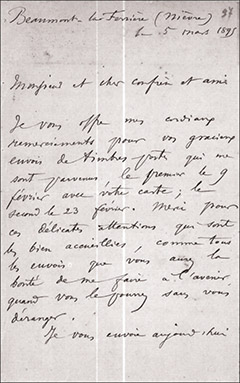 Beaumont la Ferrière (Nièvre)
87
le 5 mars 1895
Monsieur et cher confrère et ami
Je vous offre mes cordiaux
remerciements pour vos gracieux
envois de timbres poste qui me
sont parvenus, le premier le 9
février avec votre carte ; le
second le 23 février. Merci pour
ces délicates attentions qui sont
les bien accueillies, comme tous
les envois que vous aurez la
bonté de me faire à l'avenir,
quand vous le pourrez sans vous
déranger.
Je vous envoie aujourd'hui